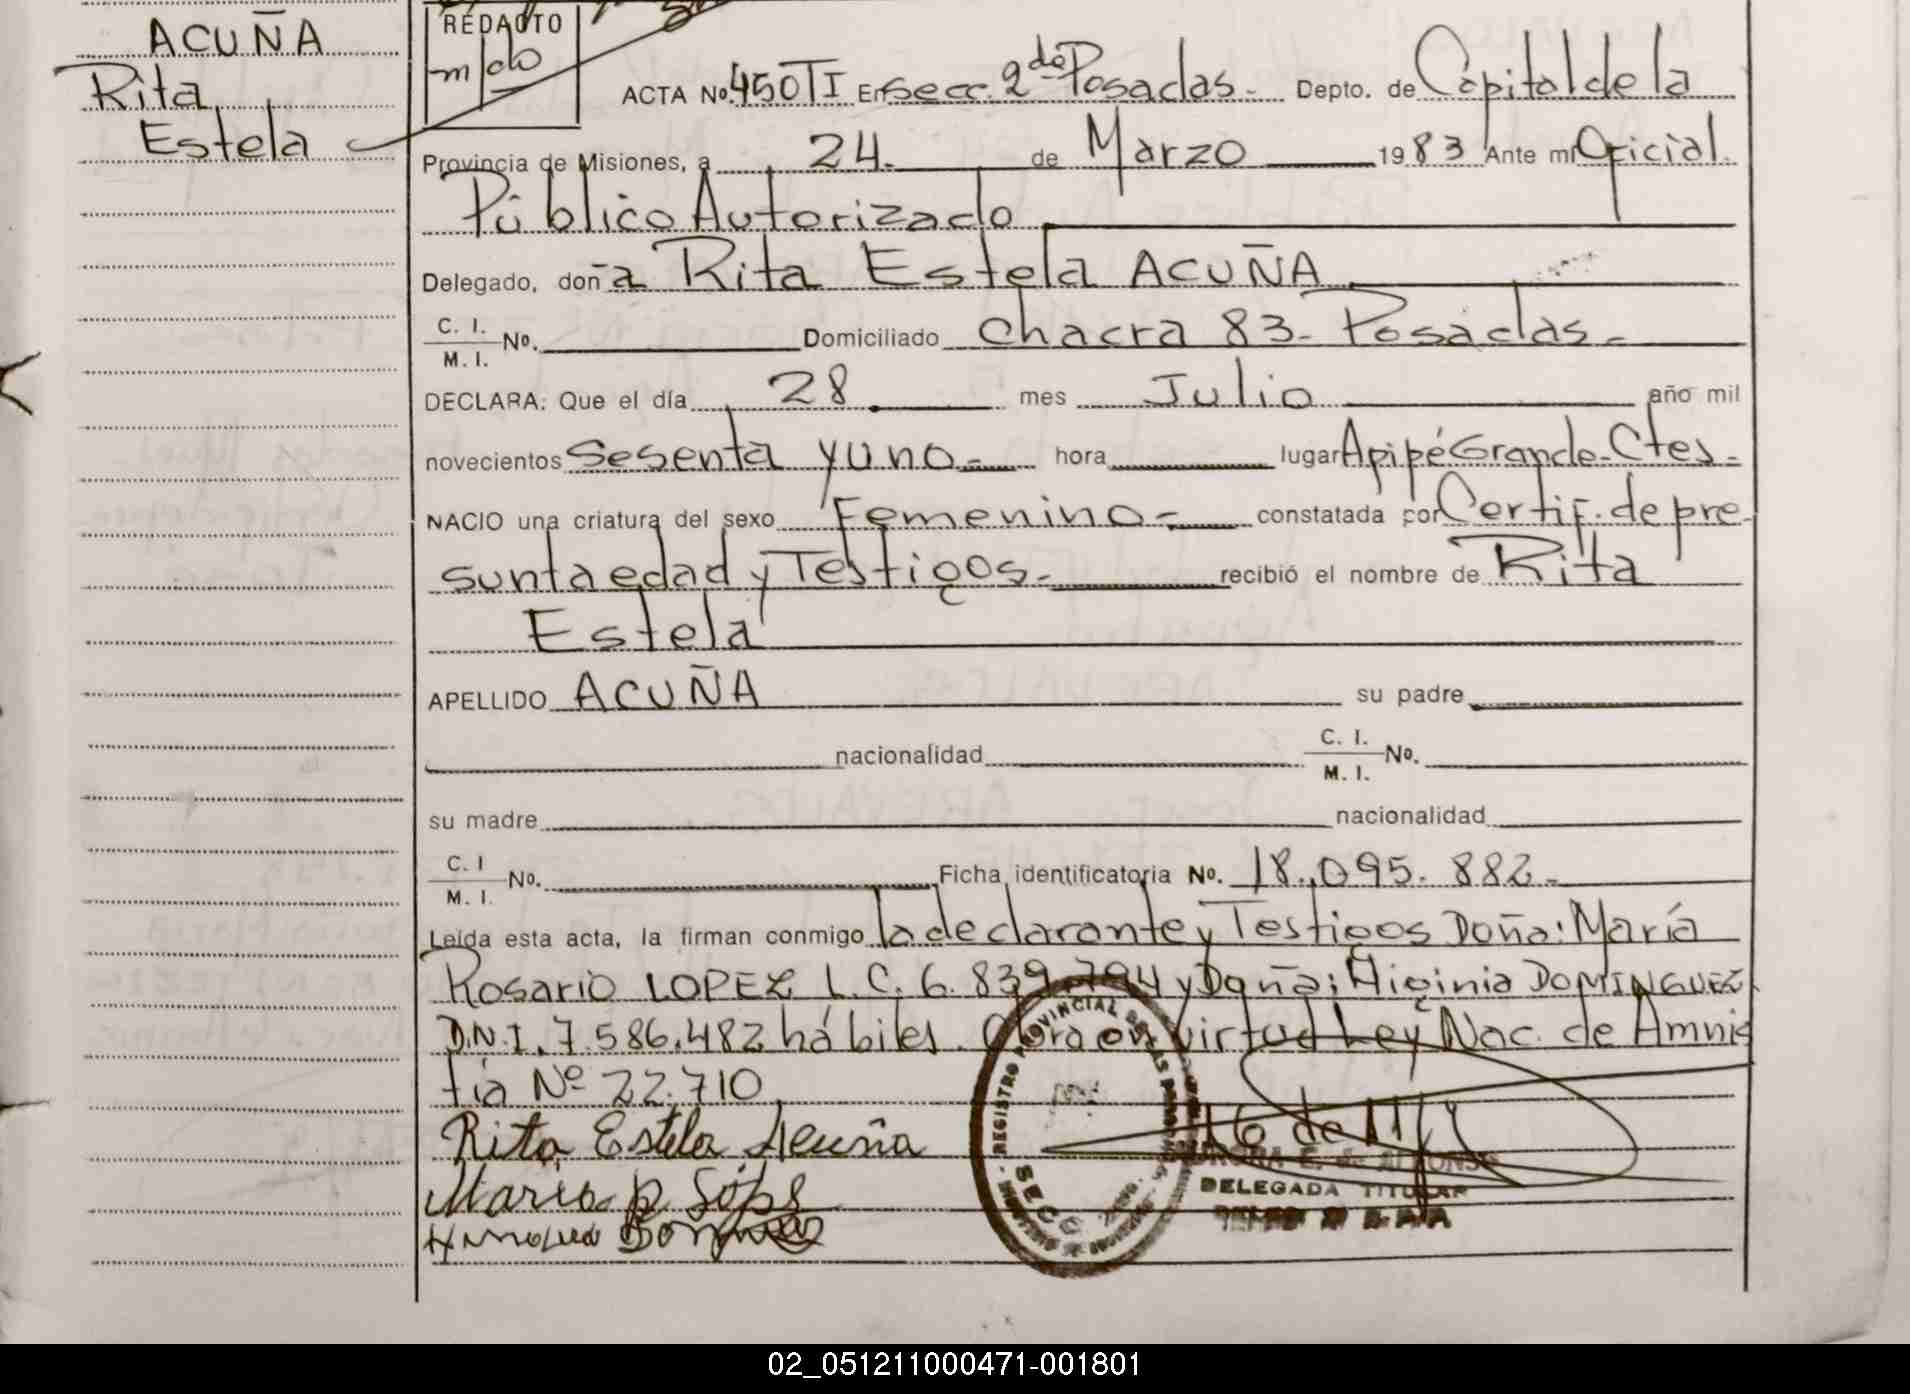 ACUÑA
Rita
Estela
REDACTO
ACTA No. 450 TI En secc. 2da Posadas. Depto. de Capital de la
Provincia de Misiones, a 24. de Marzo 1983 Ante mi Oficial
Público Autorizado
Delegado, doña Rita Estela ACUÑA
C. I. M. I. No. Domiciliado Chacra 83- Posadas.-
DECLARA: Que el día 28 mes Julio año mil
novecientos Sesenta y uno- hora lugar Apipé Grande-Ctes-
NACIO una criatura del sexo Femenino- constatada por Certif. de pre-
sunta edad y Testigos- recibió el nombre de Rita
Estela
APELLIDO ACUÑA su padre
nacionalidad C. I. M. I. No.
su madre nacionalidad
C. I M. I. No. Ficha identificatoria No. 18.095.882-
Leída esta acta, la firman conmigo la declarante y Testigos Doña: María
Rosario LOPEZ L.C. 6.839.794 y Doña: Higinia DOMINGUEZ
D.N.I. 7.586.482 hábiles. Obra en virtud Ley Nac. de Amnis
tía Nº 22.710
Rita Estela Acuña
REGISTRO PROVINCIAL DE LAS PERSONAS
SECC
DELEGADA TITULAR
02_051211000471-001801